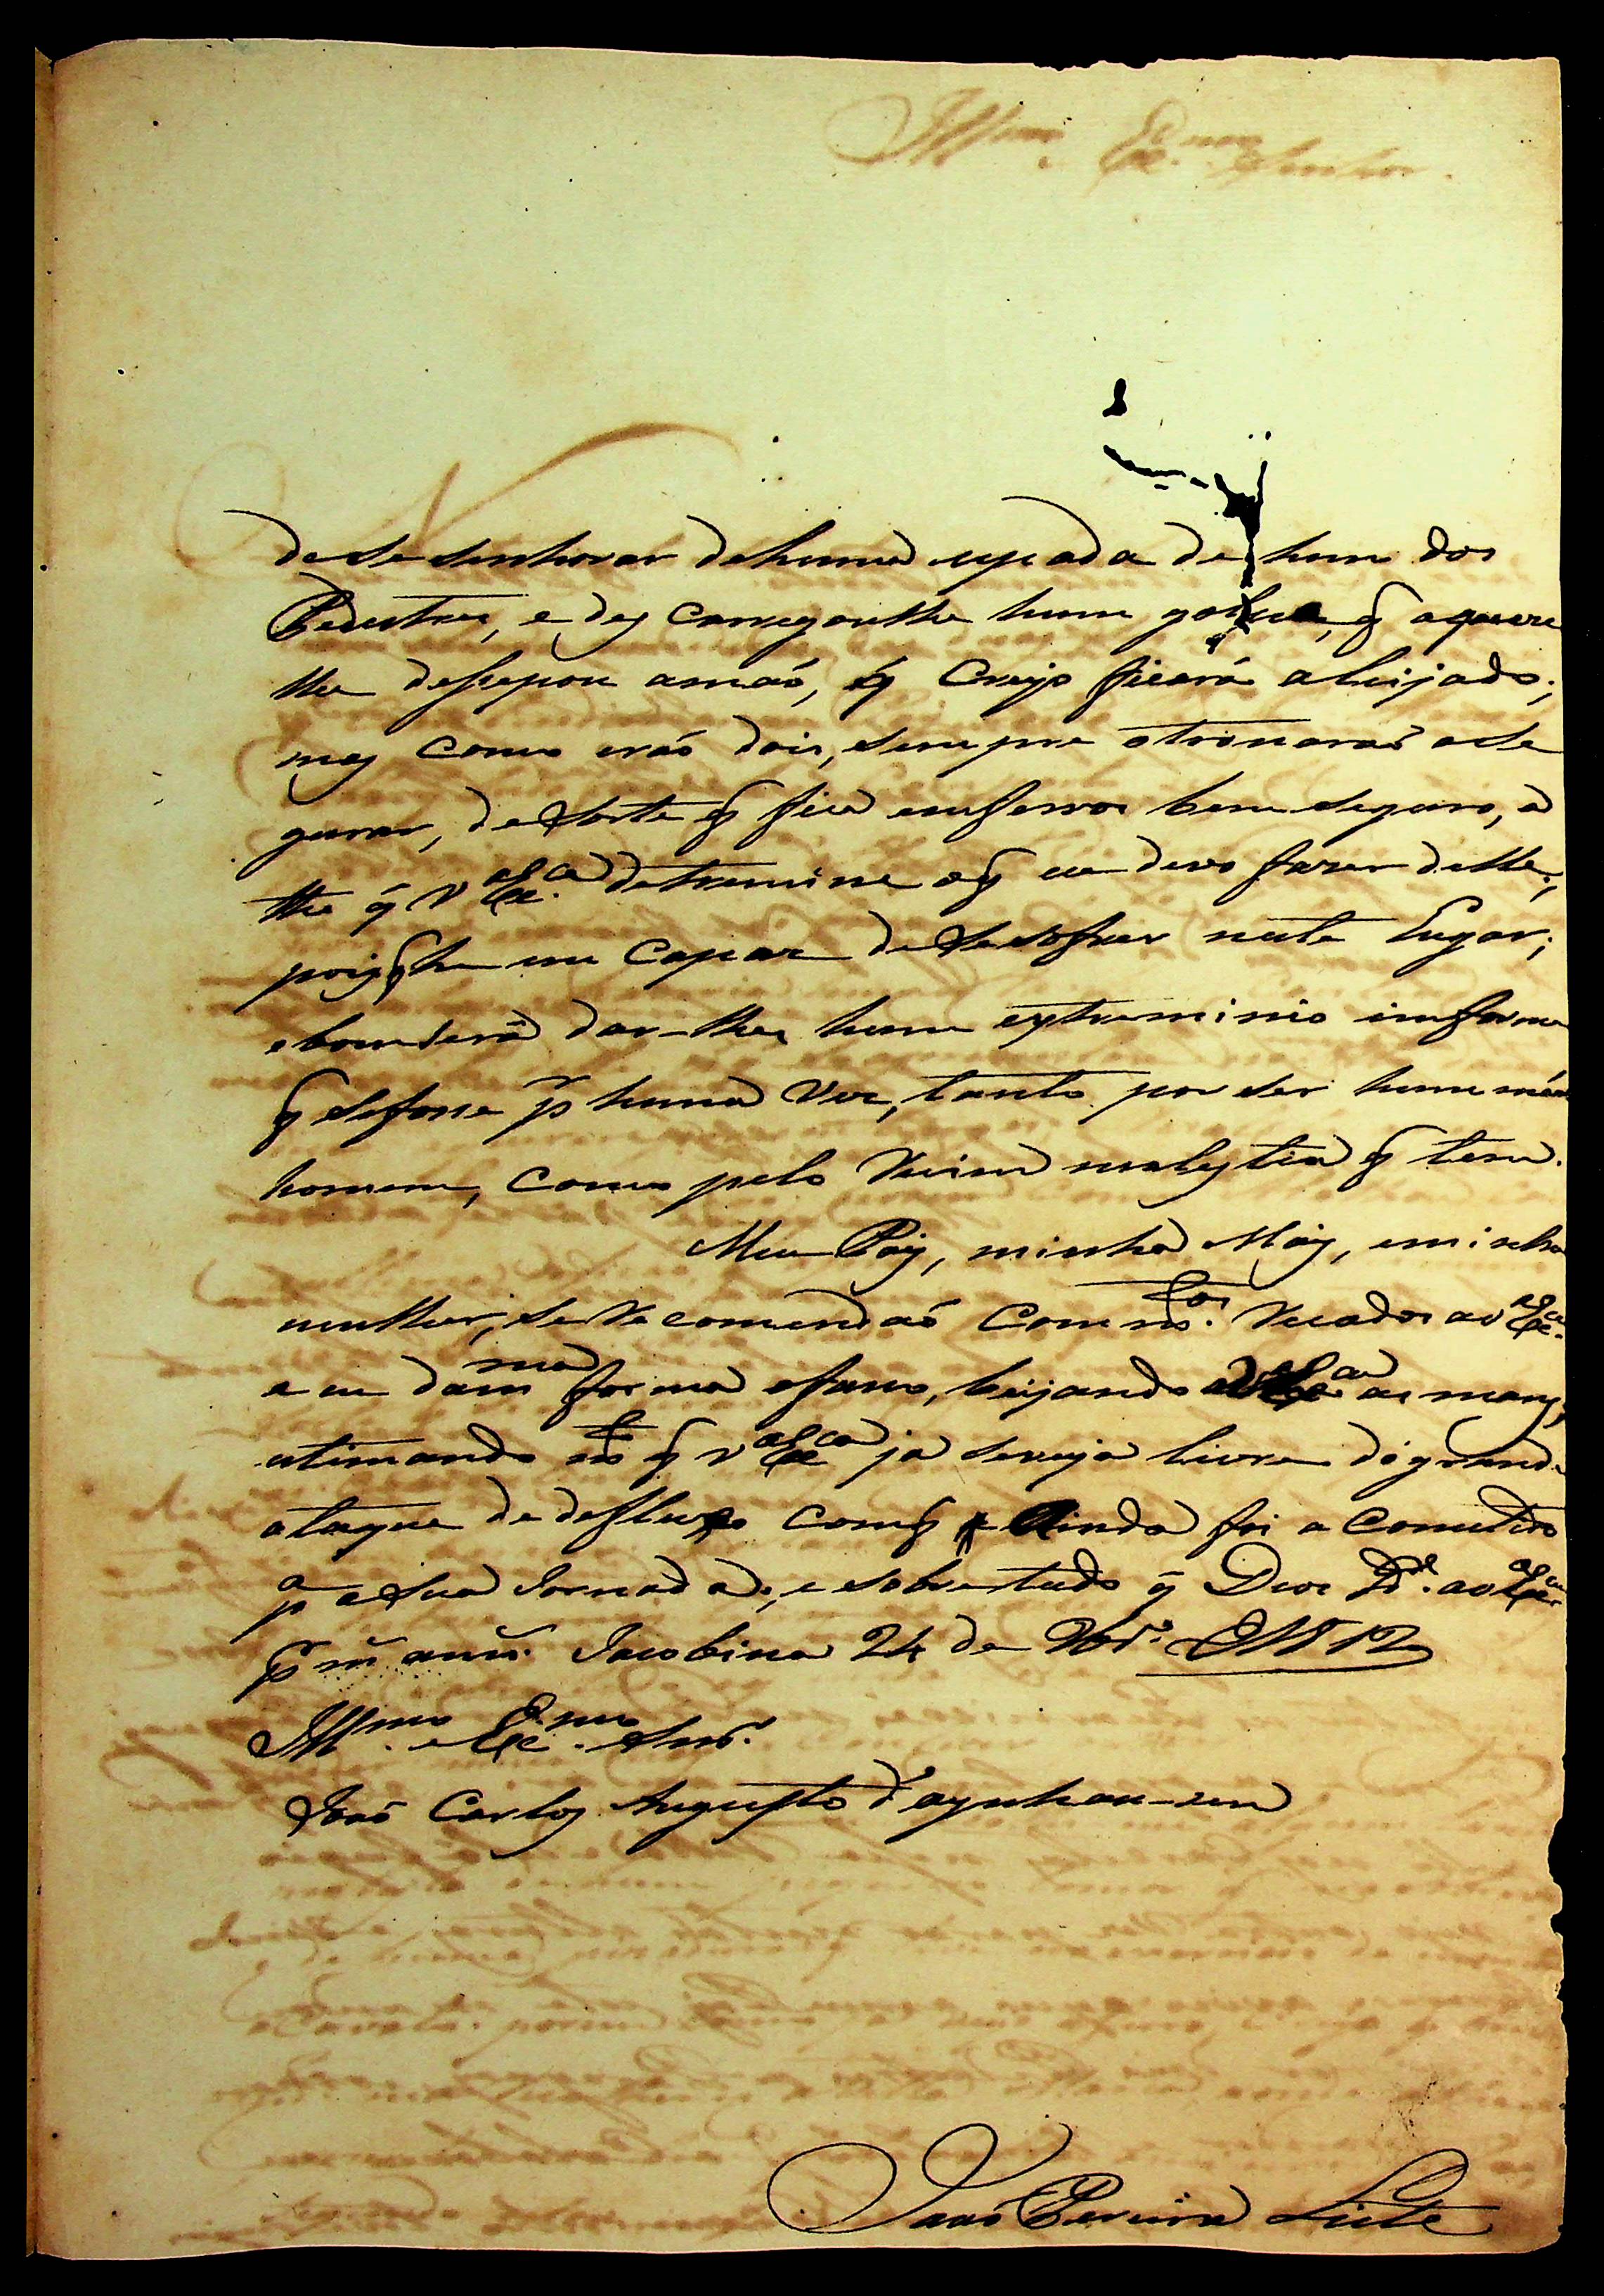 de se senhorar dehuma espada de hum dos
Pedestres, e des carregoulhe hum golpe, q̃ aquere
lhe dessepou amaó, éq̃ Creyo ficará aleijado;
mas como eraó dois, sempre otrouxeraõ ase
gurar, de Sorte q̃ fica emferros bem seguro, a
the q̃ V Ex.ca detremine oq̃ eu devo fazer delle;
pois q̃ he em Capaz de Sesofrer neste Lugar;
e bom Será dar-lhe, hum extreminio em forma
q̃ sefosse p.r huma Vez, tanto por ser hum máo
homem, como pelo Ruim molestia q̃ tem.
Meu Pay, minha May, eminha
mulher, se Re comendaó Com m.tos Recados a V Ex.ca
e eu dam.ma forma ofaso, beijando a V Ex.ca as mans,
estimando m.to q̃ V Ex.ca ja esteja livre do grande
ataque de defluxo Comq̃ Ainda foi a Cometido
p.a a Sua Jornada, e sobretudo q̃ Deos G.de a V Ex.ca
p.r m.s ann.s Jacobina 24 de 9br.o de 1812
Ill.mo e Ex.mo Snr.
Joaó Carlos Augusto d'aynhau-sen
Joaó Pereira Leite